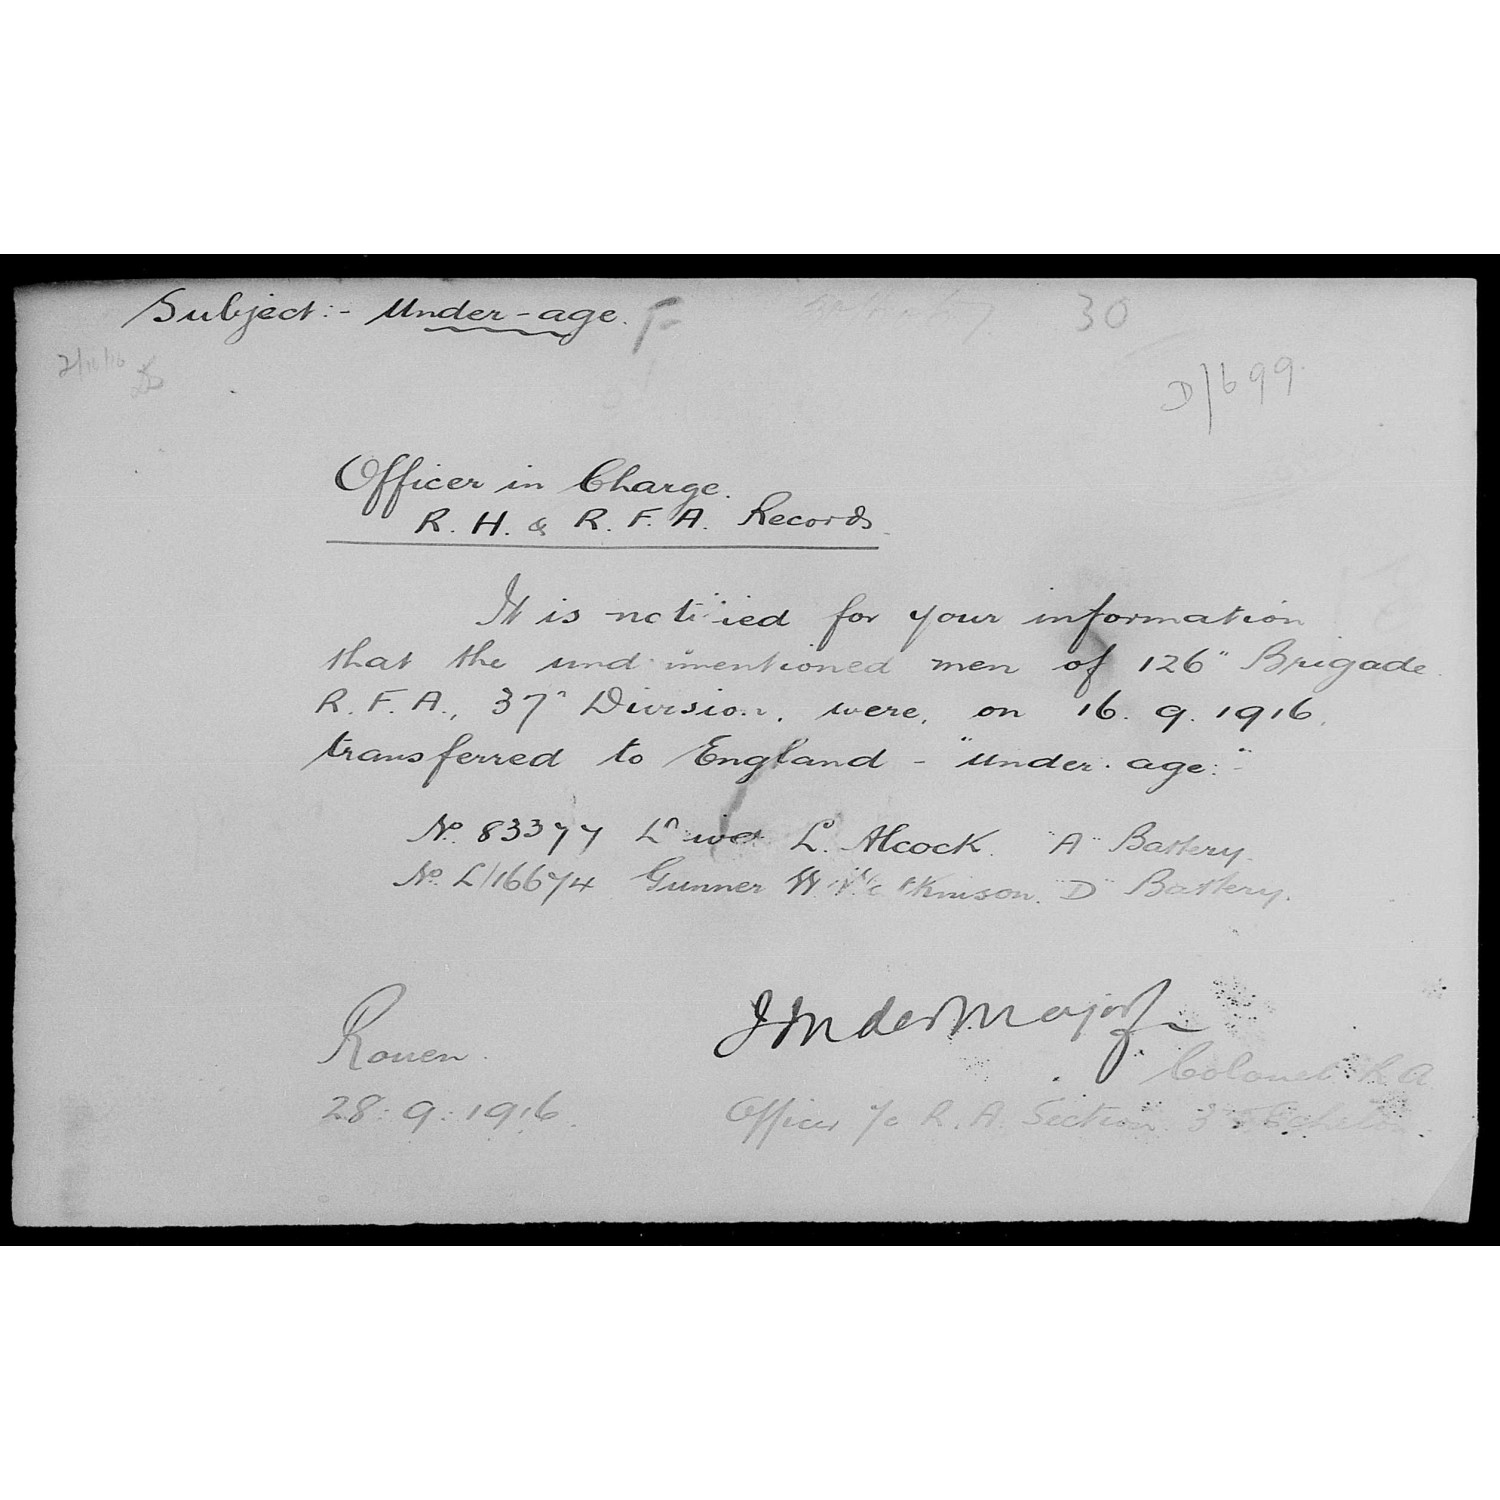 Subject:- Under-age.
30
2/10/16
D/699.
Officer in Charge.
R. H. & R. F. A. Records.
It is notified for your information
that the undermentioned men of 126" Brigade
R. F. A., 37" Division, were, on 16. 9. 1916,
transferred to England - "under-age."
No. 83377 L. Alcock. "A" Battery.
No. L/16674 Gunner W. "D" Battery.
Rouen.
Major
28.9.1916.
Colonel R A
Officer i/c R. A. Section 3rd Echelon.